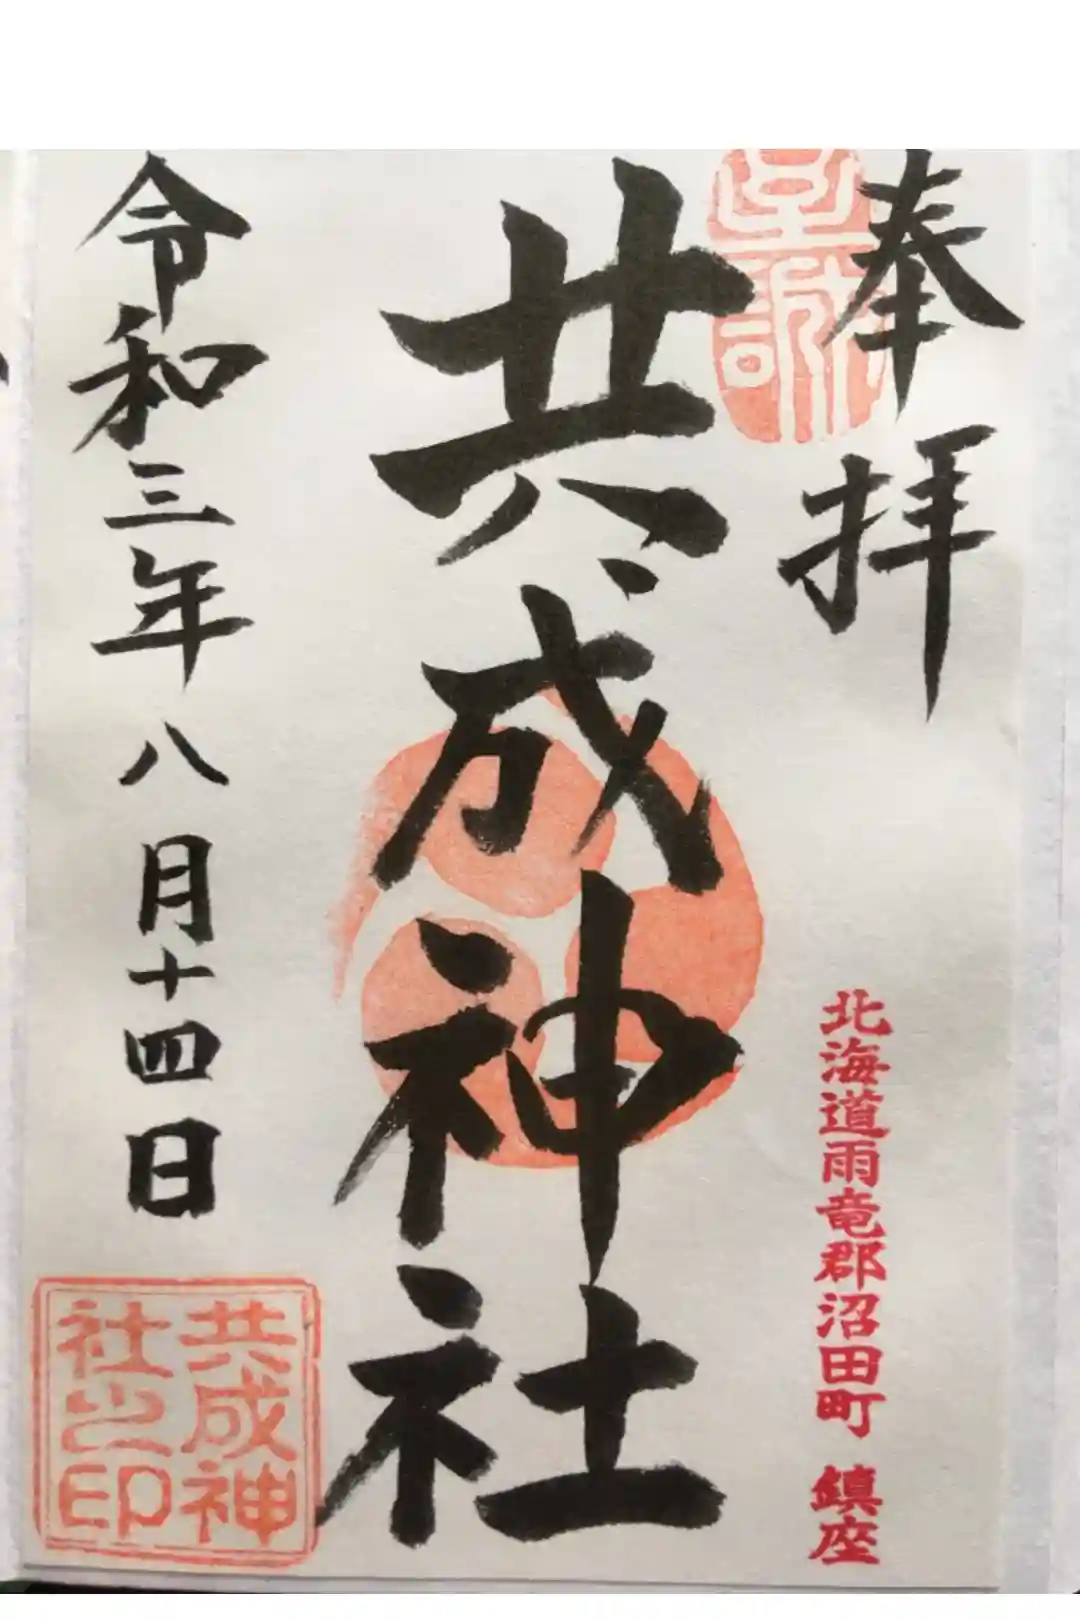 奉拝
至誠
北海道雨竜郡沼田町 鎮座
共成神社
令和三年八月十四日
共成神
社之印